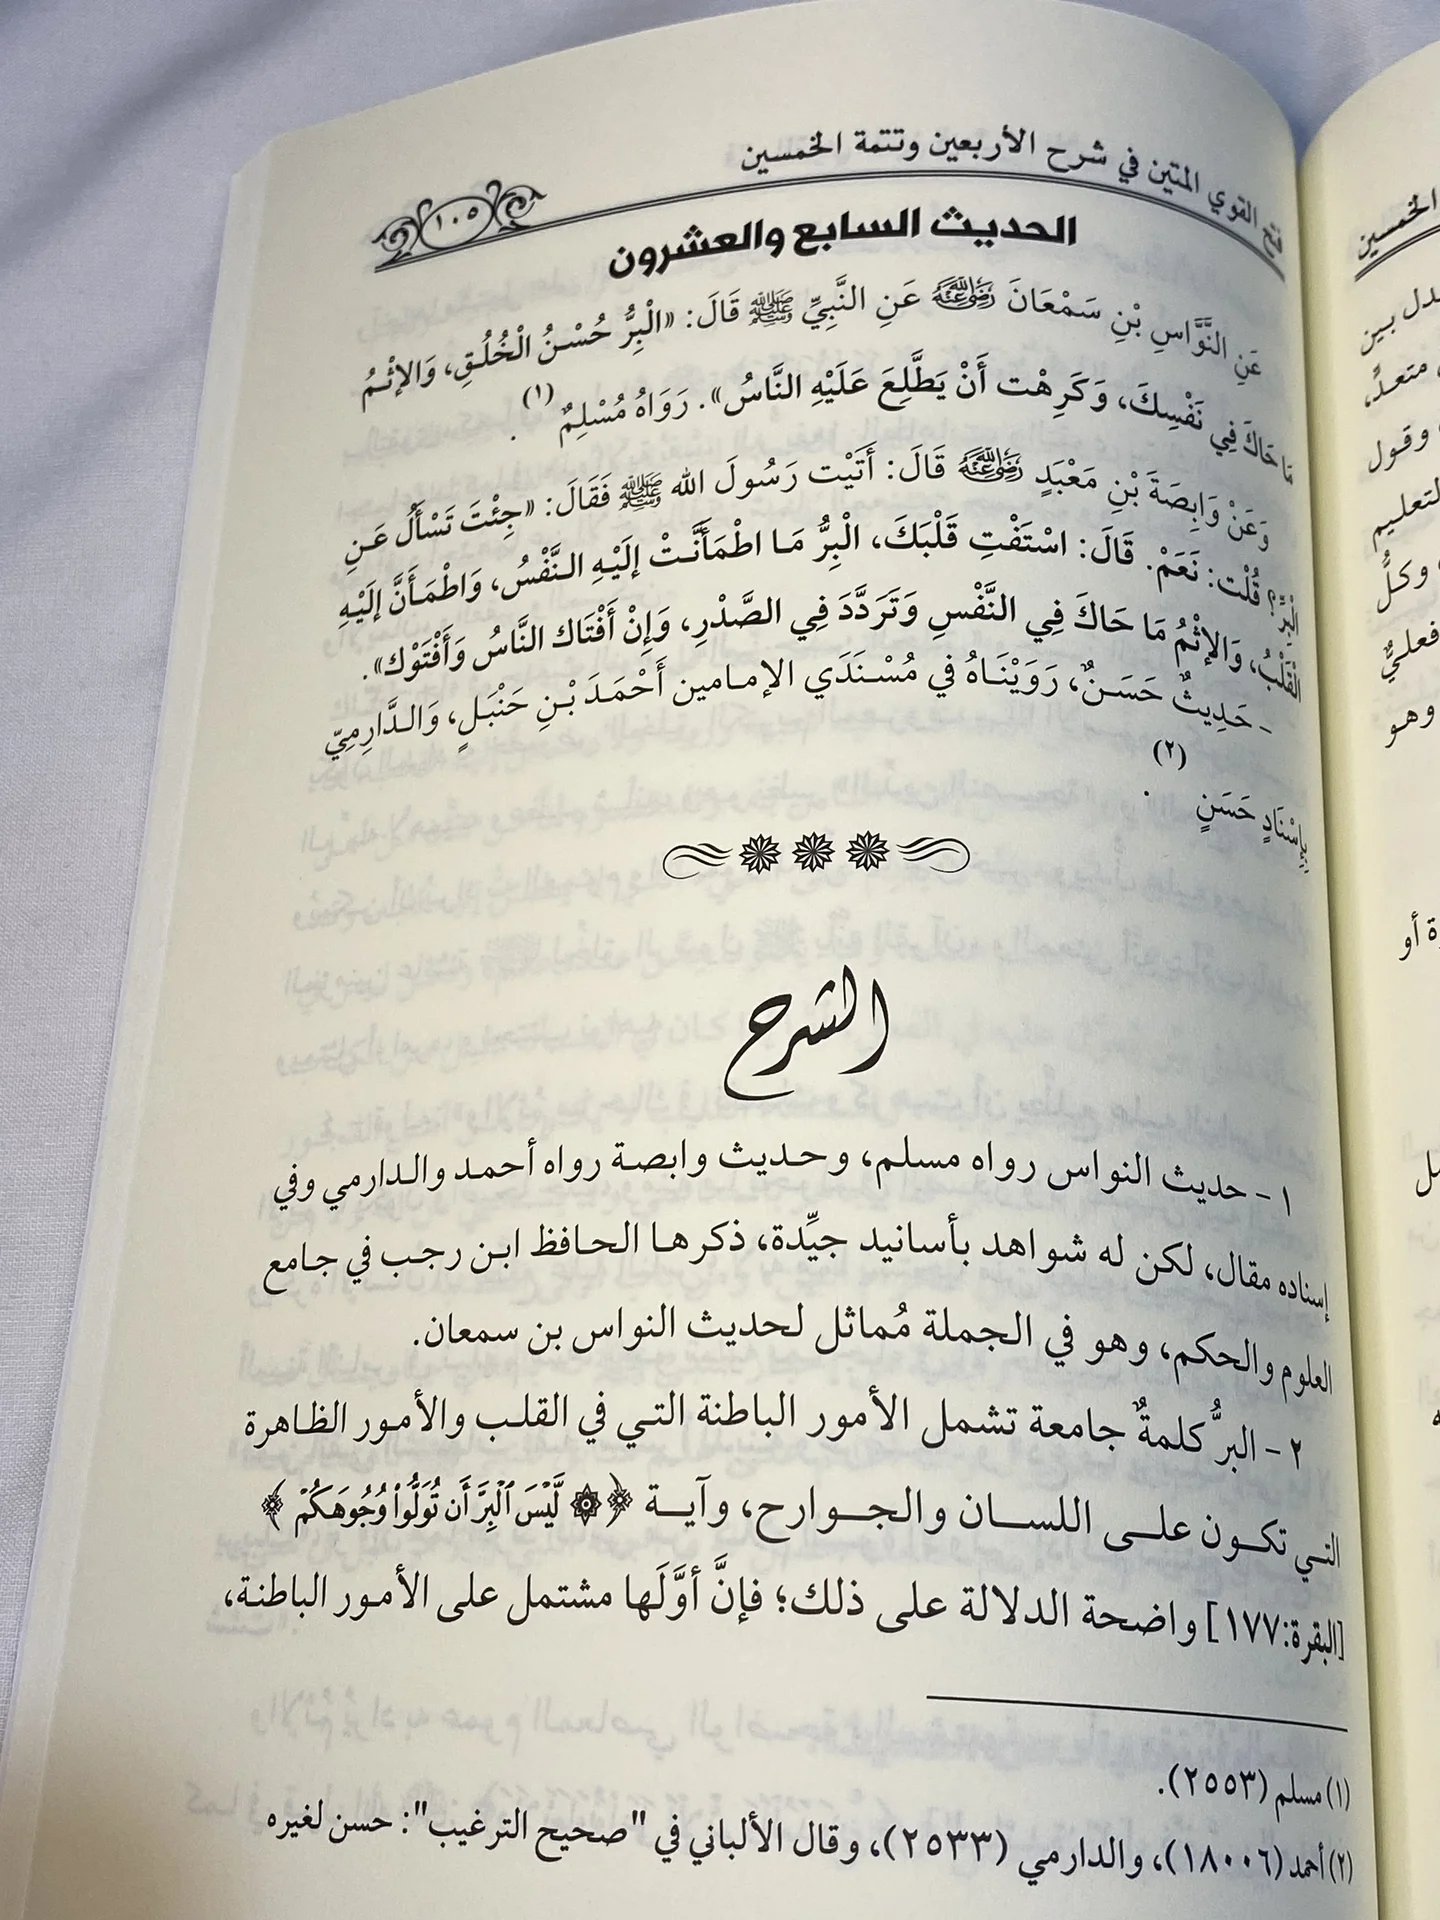 فتح القوي المتين في شرح الأربعين وتتمة الخمسين
١٠٥
الحديث السابع والعشرون
عَنِ النَّوَّاسِ بْنِ سَمْعَانَ رَضِيَ اللَّهُ عَنْهُ عَنِ النَّبِيِّ ﷺ قَالَ: «الْبِرُّ حُسْنُ الْخُلُقِ، وَالإثْمُ
مَا حَاكَ فِي نَفْسِكَ، وَكَرِهْت أَنْ يَطَّلِعَ عَلَيْهِ النَّاسُ». رَوَاهُ مُسْلِمٌ (١).
وَعَنْ وَابِصَةَ بْنِ مَعْبَدٍ رَضِيَ اللَّهُ عَنْهُ قَالَ: أَتَيْت رَسُولَ الله ﷺ فَقَالَ: «جِئْتَ تَسْأَلُ عَنِ
الْبِرِّ؟ قُلْت: نَعَمْ. قَالَ: اسْتَفْتِ قَلْبَكَ، الْبِرُّ مَا اطْمَأَنَّتْ إلَيْهِ النَّفْسُ، وَاطْمَأَنَّ إلَيْهِ
الْقَلْبُ، وَالإثْمُ مَا حَاكَ فِي النَّفْسِ وَتَرَدَّدَ فِي الصَّدْرِ، وَإِنْ أَفْتَاك النَّاسُ وَأَفْتَوْك».
- حَدِيثٌ حَسَنٌ، رَوَيْنَاهُ في مُسْنَدَي الإمامين أَحْمَدَ بْنِ حَنْبَلٍ، وَالدَّارِمِيّ
بِإِسْنَادٍ حَسَنٍ (٢).
الشرح
١ - حديث النواس رواه مسلم، وحديث وابصة رواه أحمد والدارمي وفي
إسناده مقال، لكن له شواهد بأسانيد جيِّدة، ذكرها الحافظ ابن رجب في جامع
العلوم والحكم، وهو في الجملة مُماثل لحديث النواس بن سمعان.
٢ - البرُّ كلمةٌ جامعة تشمل الأمور الباطنة التي في القلب والأمور الظاهرة
التي تكون على اللسان والجوارح، وآية ﴿۞ لَّيْسَ ٱلْبِرَّ أَن تُوَلُّوا۟ وُجُوهَكُمْ﴾
[البقرة:١٧٧] واضحة الدلالة على ذلك؛ فإنَّ أوَّلَها مشتمل على الأمور الباطنة،
(١) مسلم (٢٥٥٣).
(٢) أحمد (١٨٠٠٦)، والدارمي (٢٥٣٣)، وقال الألباني في "صحيح الترغيب": حسن لغيره
الخمسين
بين
متعدٍّ،
وقول
التعليم
وكلُّ
فعليٌّ
وهو
أو